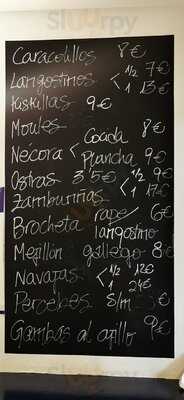 Slurpy
Caracolillos 8€
Langostinos < 1/2 7€
1 13€
Kiskillas 9€
Moules
Cocida 8€
Nécora < Plancha 9€
Ostras 3'5€ < 1/2 9€
Zamburiñas 1 17€
Brocheta rape/ 6€
langostino
Mejillón gallego 8€
Navajas < 1/2 12€
1 24€
Percebes S/m 3€
Gambas al ajillo 9€